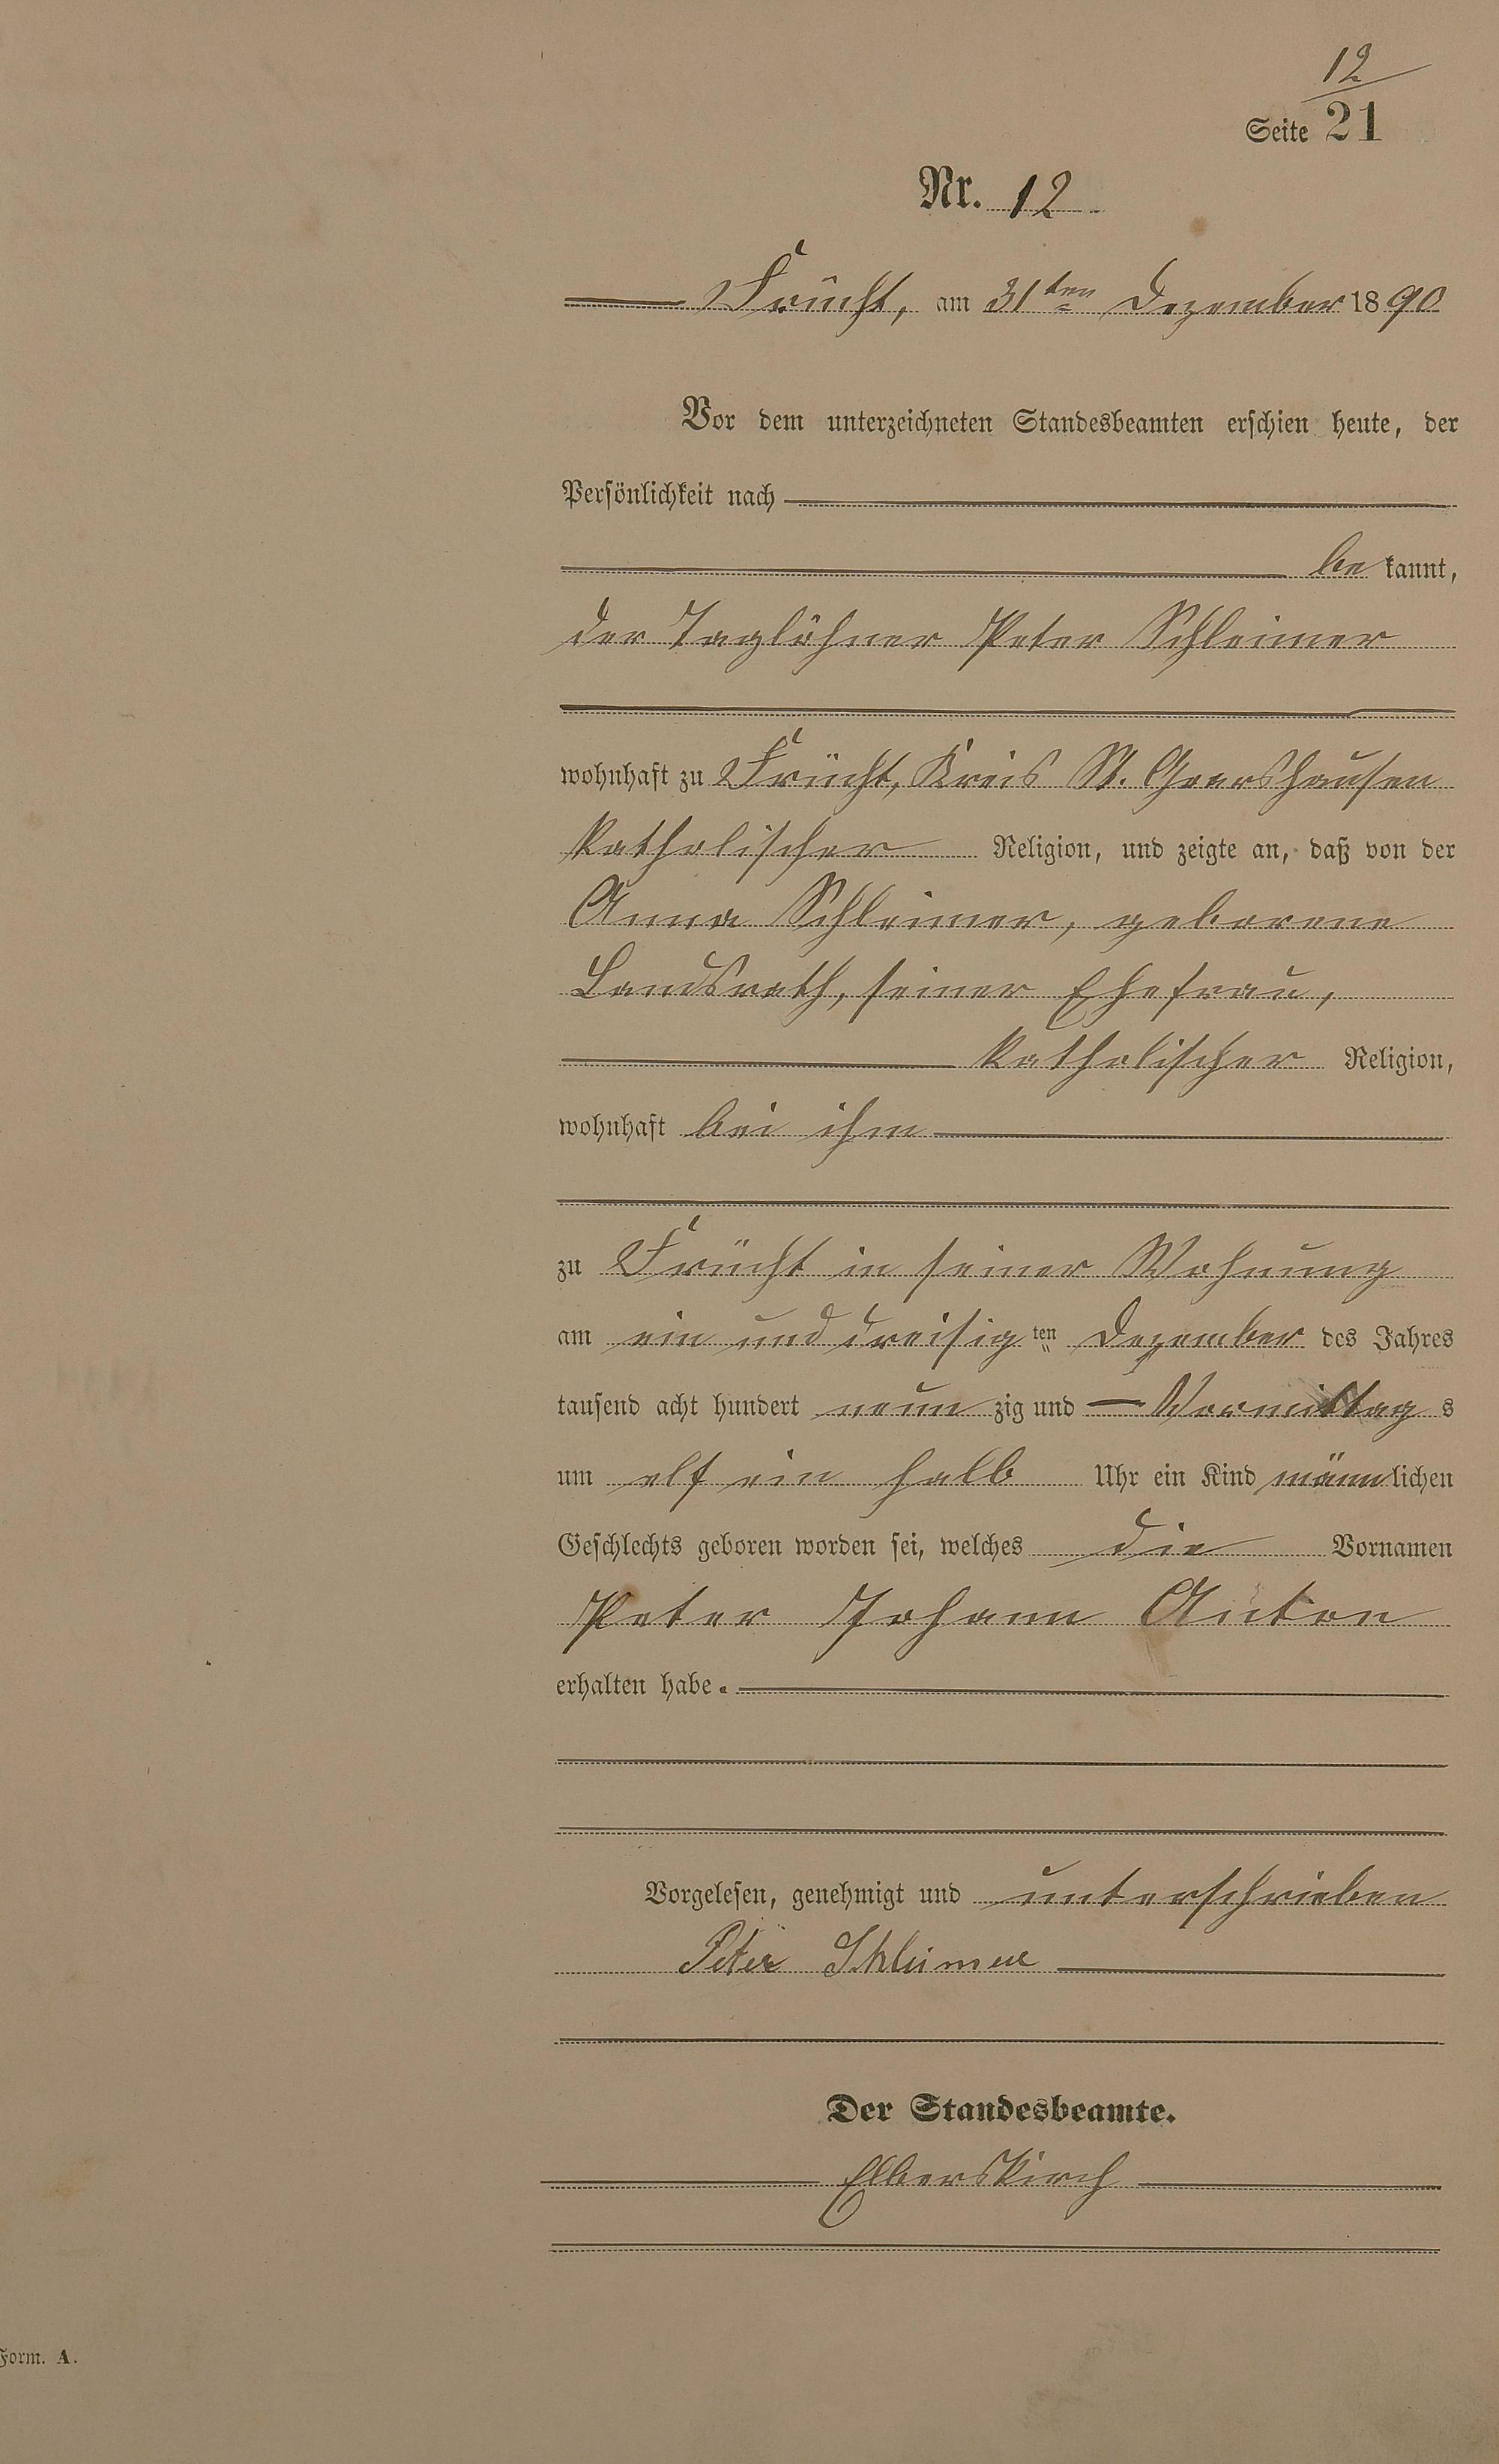 12
Seite 21
Nr. 12
Frücht, am 31ten Dezember 1890
Vor dem unterzeichneten Standesbeamten erschien heute, der
Persönlichkeit nach
be kannt,
der Taglöhner Peter Schleimer
wohnhaft zu Frücht, Kreis St. Goarshausen
katholischer Religion, und zeigte an, daß von der
Anna Schleimer, geborene
Landsrath, seiner Ehefrau,
katholischer Religion,
wohnhaft bei ihm
zu Frücht in seiner Wohnung
am ein und dreisig ten Dezember des Jahres
tausend acht hundert neun zig und — Vormittag s
um elf ein halb Uhr ein Kind männlichen
Geschlechts geboren worden sei, welches die Vornamen
Peter Johann Anton
erhalten habe.
Vorgelesen, genehmigt und unterschrieben
Peter Schleimer
Der Standesbeamte.
Elberskirch
Form. A.